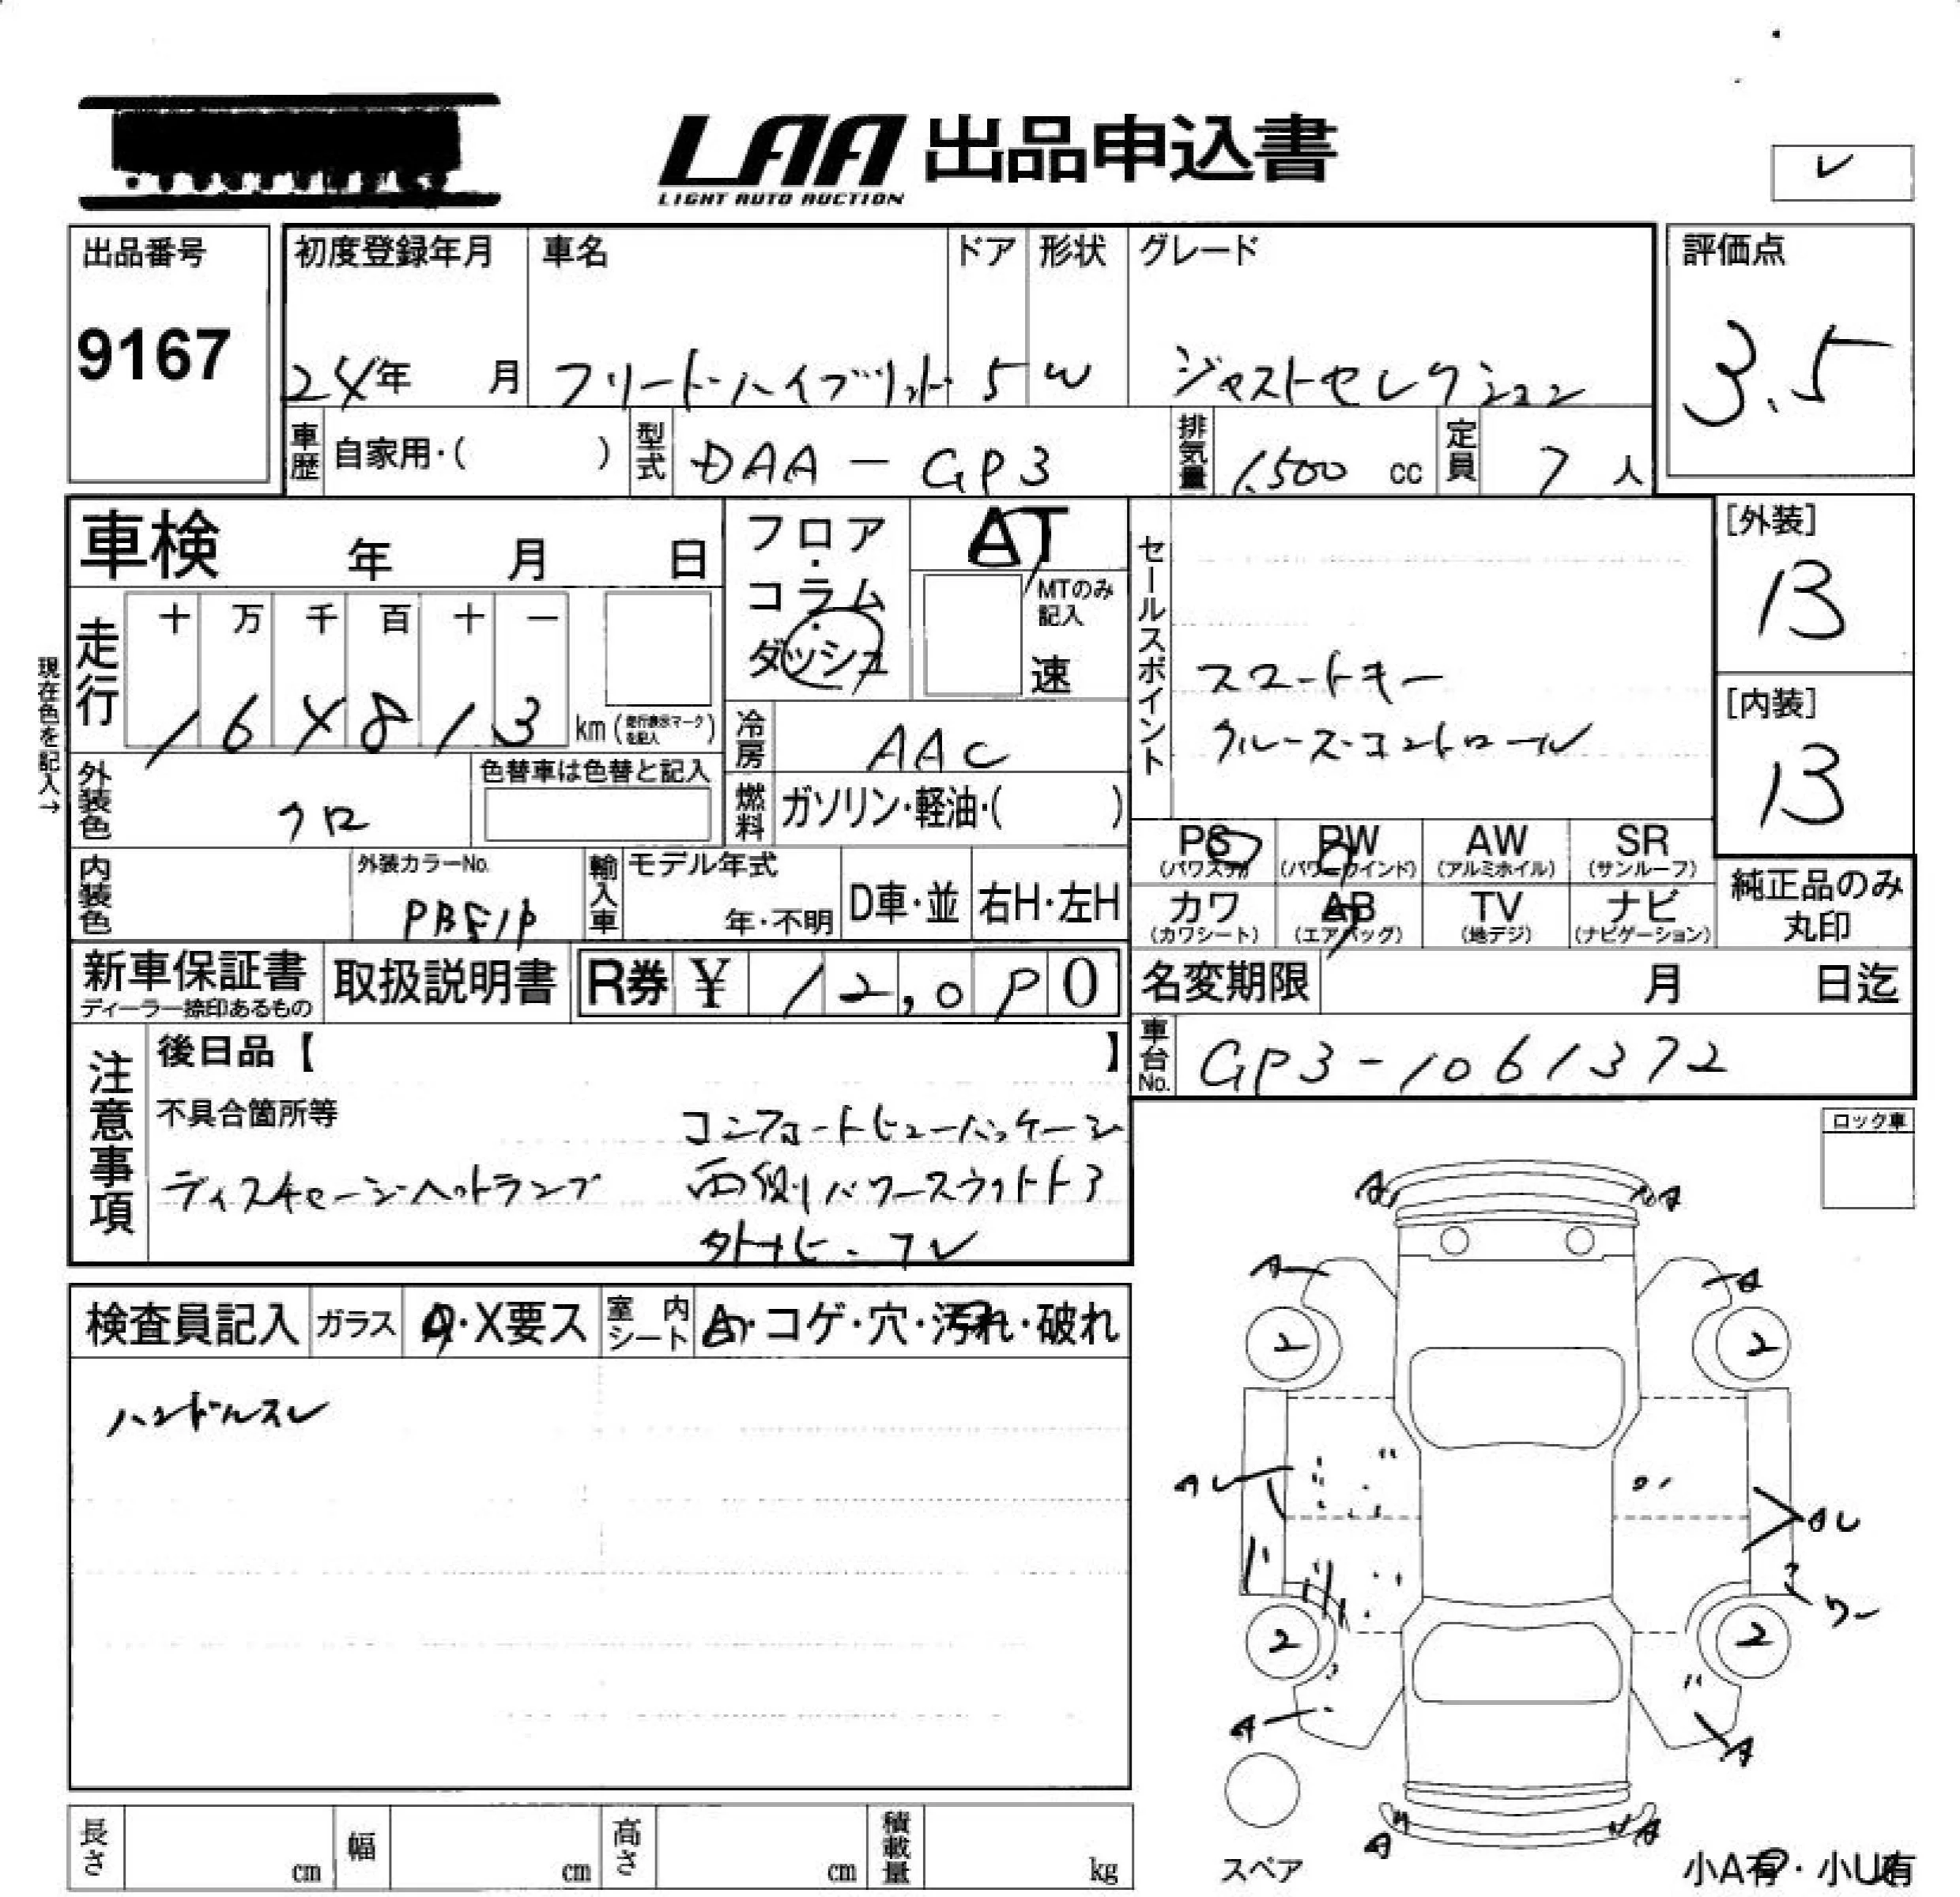 LAA 出品申込書
LIGHT AUTO AUCTION
レ
出品番号
9167
初度登録年月 車名 ドア 形状 グレード
24年 月 フリードハイブリッド 5 W ジャストセレクション
評価点
3.5
車歴 自家用・( ) 型式 DAA-GP3 排気量 1,500 cc 定員 7 人
車検 年 月 日
フロア・コラム・ダッシュ
AT
MTのみ記入
速
現在色を記入→
走行 十 万 千 百 十 一
164813 km (走行表示マークを記入)
冷房 AAC
外装色 クロ
色替車は色替と記入
燃料 ガソリン・軽油・( )
セールスポイント
スマートキー
クルーズコントロール
[外装]
B
[内装]
B
内装色
外装カラーNo.
輸入車 モデル年式
年・不明 D車・並 右H・左H
PS (パワステ) PW (パワーウインド) AW (アルミホイル) SR (サンルーフ)
カワ (カワシート) AB (エアバッグ) TV (地デジ) ナビ (ナビゲーション)
純正品のみ
丸印
新車保証書
ディーラー捺印あるもの
取扱説明書
R券 ¥ 12,0 0
名変期限 月 日迄
車台No. GP3-1061372
注意事項
後日品【 】
不具合箇所等
コンフォートビューパッケージ
ディスチャージヘッドランプ 両側パワースライドドア
外ナビ・フレ
検査員記入 ガラス A・X要ス 室内シート A・コゲ・穴・汚れ・破れ
ハンドルスレ
ロック車
A A
A A
2 2
AU AU
ワー
2 2
A A
A A
スペア
小A有・小U有
長さ cm 幅 cm 高さ cm 積載量 kg